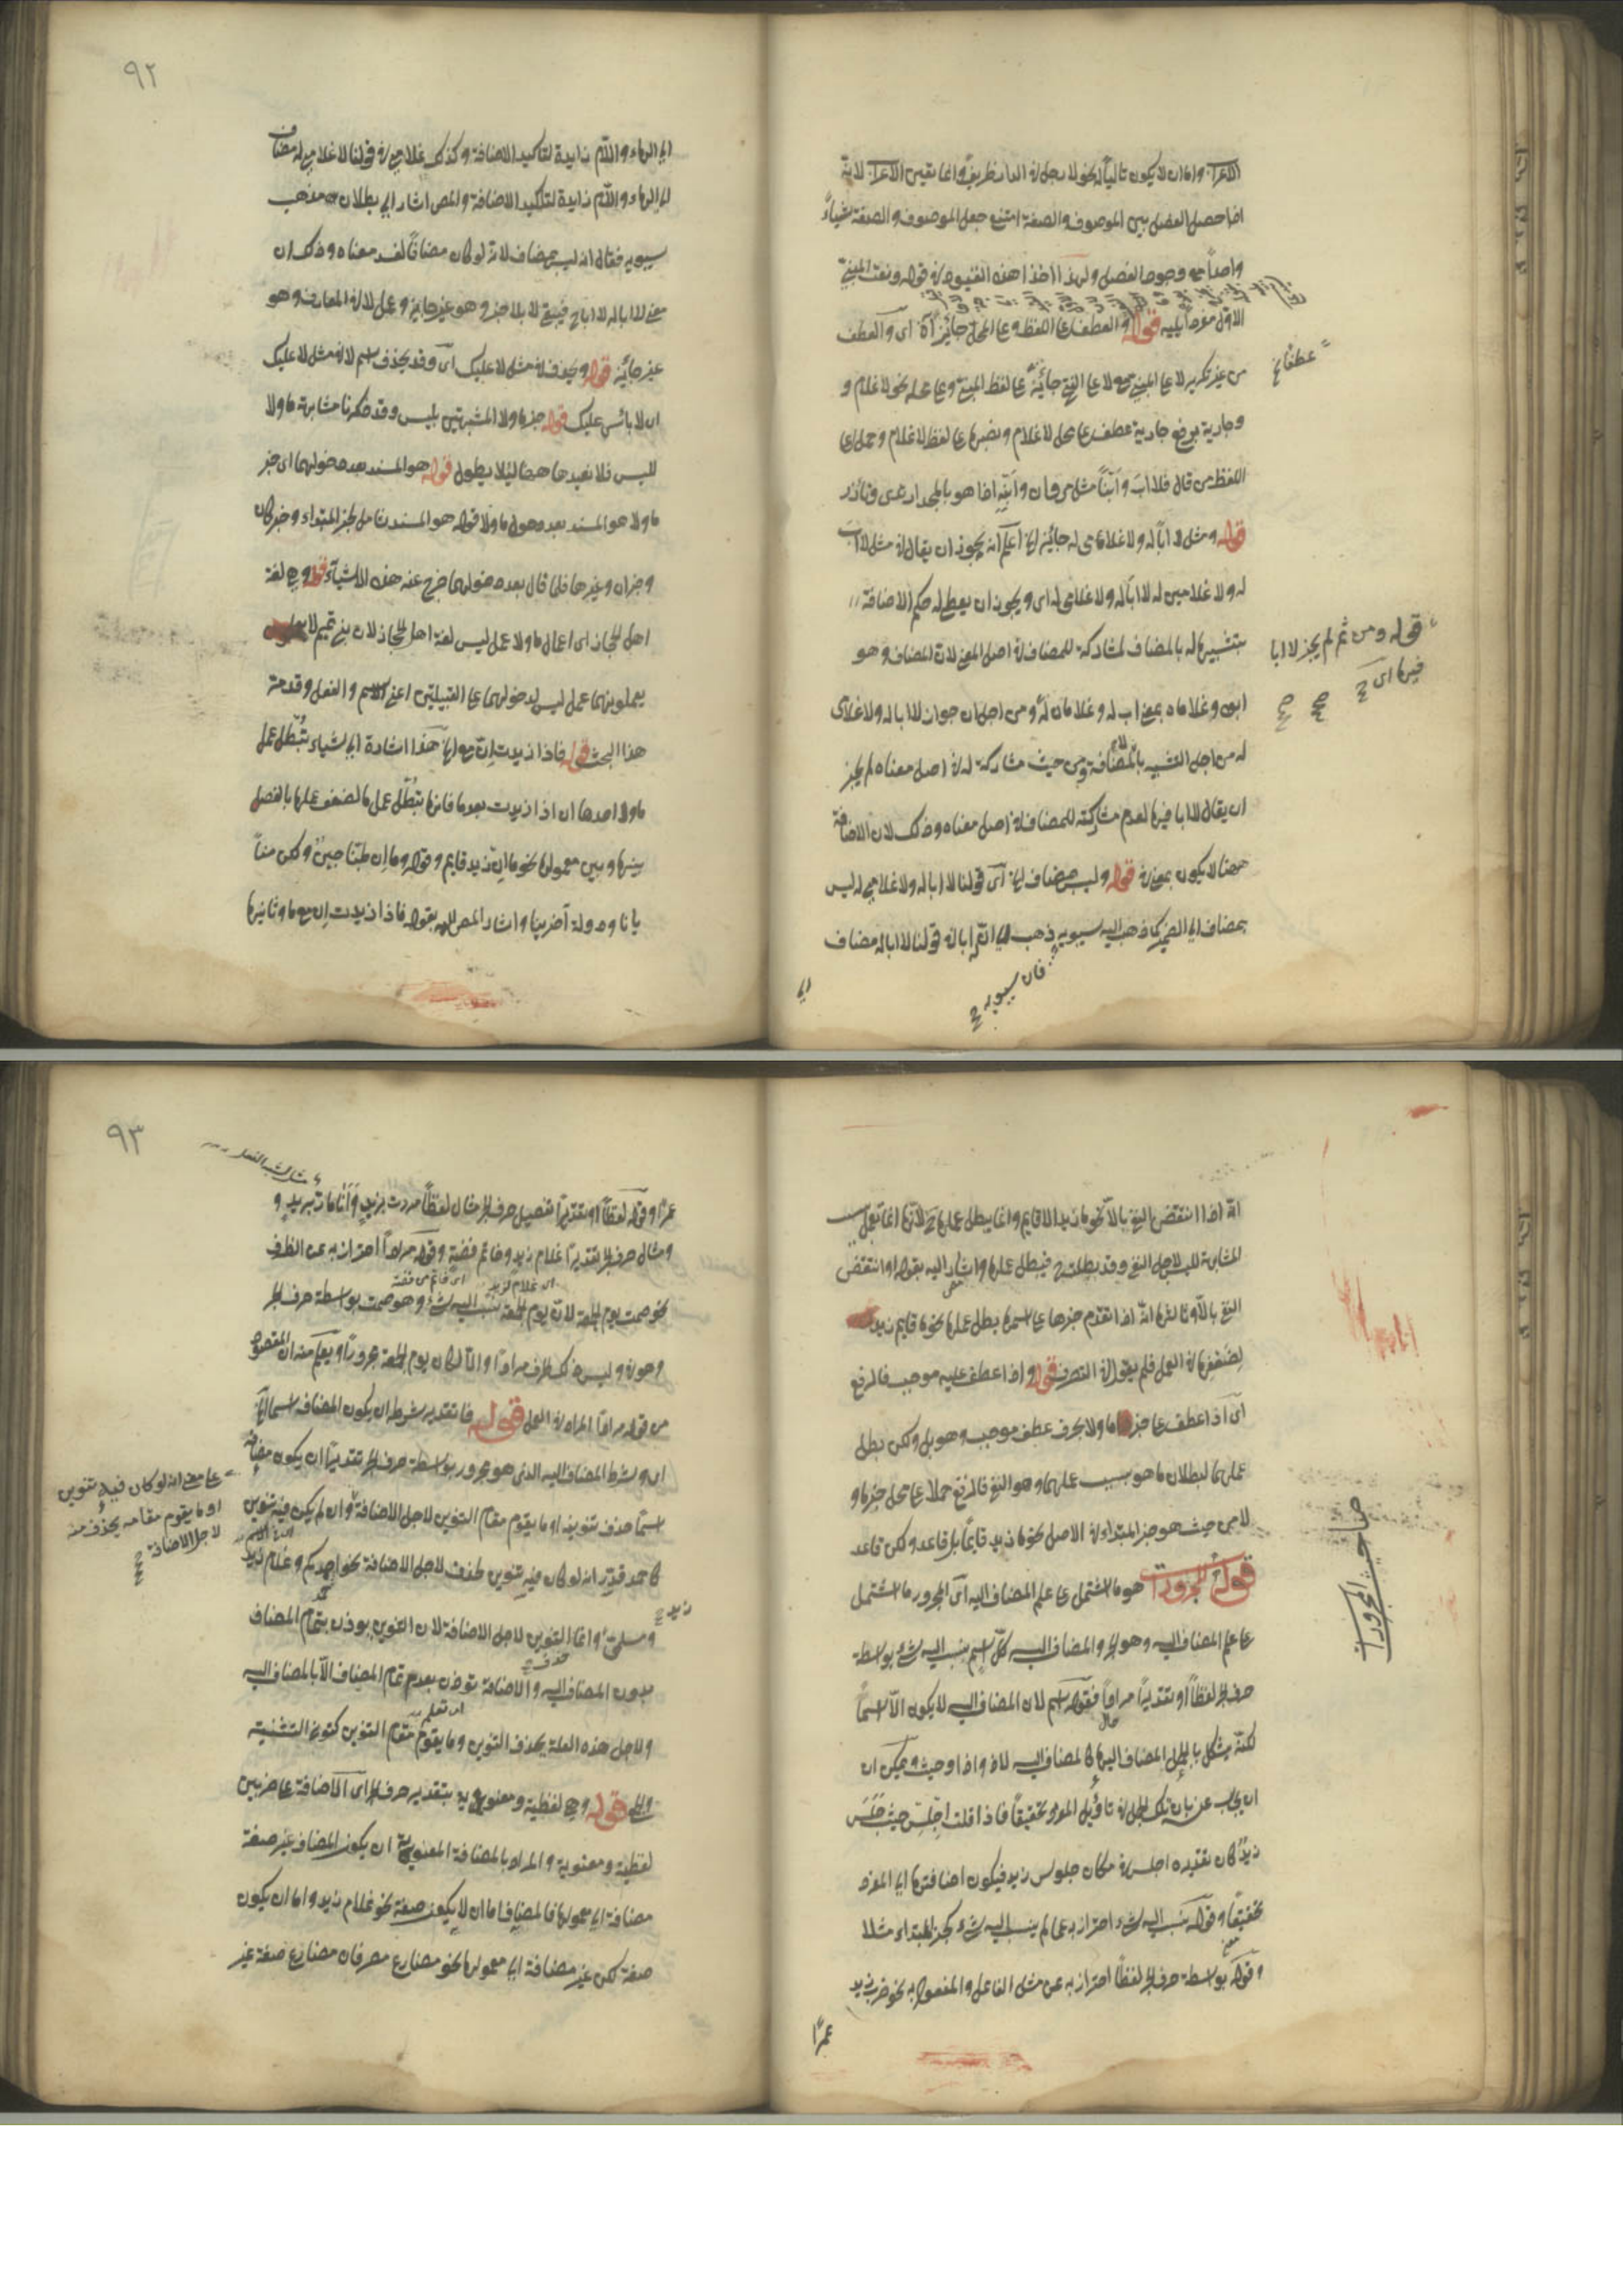 الاعراب واما ان لا يكون تاليا له نحو لا رجل في الدار ظريف وانما تعين الاعراب لانه
اذا حصل الفصل بين الموصوف والصفة امتنع جعل الموصوف والصفة شيئاً
واحداً مع وجود الفصل ولهذا اخذ هذه القيود في قوله ونعت المبني
الاول مفرداً يليه قوله والعطف على اللفظ وعلى المحل جائز اه اى والعطف
عطفا صح
من غير تكرير لا على المبني مع لا على الفتح جائز على لفظ المبني وعلى محله نحو لا غلام و
وجارية برفع جارية عطف على محل لا غلام ونصبها على لفظ لا غلام وحمل على
اللفظ من قال فلا اب وابناً مثل مروان وابنه اذا هو بالمجد ارتدى وتأزر
قوله ومثل لا اباً له ولا غلامى له جائز الخ اعلم انه يجوز ان يقال في مثل لا اب
له ولا غلامين له لا ابا له ولا غلامى له اى ويجوز ان يعطى له حكم الاضافة
بتشبيهها له بالمضاف لمشاركته للمضاف في اصل المعنى لان المضاف وهو
قوله ومن ثم لم يجز لا ابا
فيها اى صح
ابوه وغلاماه بمعنى اب له وغلامان له ومن اجل ان جواز لا ابا له ولا غلامى
له من اجل التشبيه بالمضاف ومن حيث مشاركته له في اصل معناه لم يجز
ان يقال لا ابا فيها لعدم مشاركته للمضاف في اصل معناه وذلك لان الاضافة
ههنا لا يكون بمعنى في قوله وليس بمضاف الخ اى قولنا لا ابا له ولا غلامى له ليس
بمضاف الى الضمير كما ذهب اليه سيبويه ذهب الى ان ابا في قولنا لا ابا له مضاف
فان سيبويه صح
الى
٩٢
الى الهاء واللام زايدة لتاكيد الاضافة وكذلك غلامى في قولنا لا غلامى له مضاف
الى الهاء واللام زايدة لتاكيد الاضافة والمص اشار الى بطلان مذهب
سيبويه فقال انه ليس بمضاف لانه لو كان مضافاً لفسد معناه وذلك ان
معنى لا ابا له لا اباه فيبقى لا بلا خبر وهو غير جايز وعمل لا في المعارف وهو
غير جائز قوله ويحذف في مثل لا عليك اى وقد يحذف اسم لا في مثل لا عليك
اى لا بأس عليك قوله خبر ما ولا المشبهتين بليس وقد ذكرنا مشابهة ما ولا
لليس فلا نعيدها ههنا لئلا يطول قوله هو المسند بعد دخولهما اى خبر
ما ولا هو المسند بعد دخول ما ولا قوله هو المسند شامل لخبر المبتداء وخبر كان
وخبر ان وغيرها فلما قال بعد دخولهما خرج عنه هذه الاشياء قوله وهي لغة
اهل الحجاز اى اعمال ما ولا عمل ليس لغة اهل الحجاز لان بنى تميم لا
يعملونهما عمل ليس لدخولهما على القبيلتين اعنى الاسم والفعل وقد مر
هذا البحث قوله فاذا زيدت ان مع ما الخ هذا اشارة الى اشياء تبطل عمل
ما ولا احدها ان اذا زيدت بعد ما فانها تبطل عمل ما لضعف عملها بالفصل
بينها وبين معمولها نحو ما ان زيد قايم وقوله وما ان طبنا جبن ولكن منا
يانا ودولة آخرينا واشار المص اليه بقوله فاذا زيدت ان مع ما وثانيها
انه اذا انتقض النفي بالا نحو ما زيد الا قايم وانما يبطل عملها ح لانها انما تعمل
لمشابهة ليس لاجل النفي وقد بطلت ح فيبطل عملها واشار اليه بقوله او انتقض
النفي بالا وثالثها انه اذا تقدم خبرها على اسمها بطل عملها نحو ما قايم زيد
لضعفها في العمل فلم يقوا في التصرف قوله واذا عطف عليه موجب فالرفع
اى اذا عطف على خبر ما ولا بحرف عطف موجب وهو بل ولكن بطل
عملها لبطلان ما هو بسبب عملها وهو النفي فالرفع حملا على محل خبر ما و
لا من حيث هو خبر المبتداء في الاصل نحو ما زيد قايماً بل قاعد ولكن قاعد
قوله المجرورات هو ما اشتمل على علم المضاف اليه اى المجرور ما اشتمل
مباحث المجرورات
على علم المضاف اليه وهو الجر والمضاف اليه كل اسم ينسب اليه شئ بواسطة
حرف الجر لفظاً او تقديراً مراداً فقوله اسم لان المضاف اليه لا يكون الا اسماً
لكنه يشكل بالجمل المضاف اليها كالمضاف اليه لاذ واذا وحيث ويمكن ان
ان يجاب عنه بان تلك الجمل في تاويل المفرد تحقيقاً فاذا قلت اجلس حيث جلس
زيد كان تقديره اجلس في مكان جلوس زيد فيكون اضافتها الى المفرد
تحقيقاً وقوله ينسب اليه شئ احتراز به عما لم ينسب اليه شئ كخبر المبتداء مثلا
وقوله بواسطة حرف الجر لفظاً احتراز به عن مثل الفاعل والمفعول به نحو ضرب زيد
عمرًا
٩٣
عمرًا وقوله لفظاً او تقديراً تفصيل حرف الجر مثال لفظاً مررت بزيد وانا مار بزيد و
ومثال حرف الجر تقديراً غلام زيد وخاتم فضة وقوله مراداً احتراز به عن الظرف
اى غلام لزيد اى خاتم من فضة
نحو صمت يوم الجمعة لان يوم الجمعة ينسب اليه شئ وهو صمت بواسطة حرف الجر
وهو في وليس ذلك الحرف مراداً والا لكان يوم الجمعة مجروراً ويعلم منه ان المقصود
من قوله مراداً المراد في العمل قوله فالتقدير شرطه ان يكون المضاف اسما الخ
اى وشرط المضاف اليه الذى هو مجرور بواسطة حرف الجر تقديراً ان يكون مضافه
اسماً حذف تنوينه او ما يقوم مقام التنوين لاجل الاضافة وان لم يكن فيه تنوين
على معنى انه لو كان فيه تنوين
او ما يقوم مقامه يحذف منه
لاجل الاضافة صح
كاحمد قدر انه لو كان فيه تنوين لحذف لاجل الاضافة نحو احمدكم وغلام زيد
ومسلمى وانما التنوين لاجل الاضافة لان التنوين يوذن بتمام المضاف
حذف
بدون المضاف اليه والاضافة توذن بعدم تمام المضاف الا بالمضاف اليه
ولاجل هذه العلة يحذف التنوين وما يقوم مقام التنوين كنون التثنية
والجمع قوله وهي لفظية ومعنوية بتقدير حرف الجر اى الاضافة على ضربين
لفظية ومعنوية والمراد بالمضافة المعنوية ان يكون المضاف غير صفة
مضافة الى معمولها فالمضاف اما ان لا يكون صفة نحو غلام زيد واما ان يكون
صفة لكن غير مضافة الى معمولها نحو مصارع مصر فان مصارع صفة غير